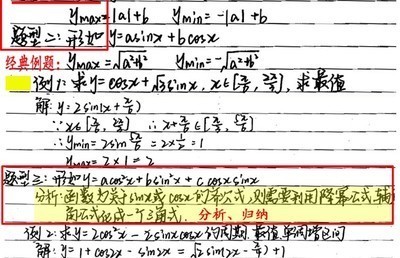 ymax=|a|+b ymin=-|a|+b
题型二:形如y=asinx+bcosx
经典例题: ymax=√a²+b² ymin=-√a²+b²
例1:求y=cosx+√3sinx, x∈[π/6, 2π/3], 求最值
解:y=2sin(x+π/6)
∵x∈[π/6, 2π/3] ∴x+π/6∈[π/3, 5π/6]
∴ymin=2sin5π/6=2×1/2=1
ymax=2×1=2
题型三:形如y=acos²x+bsin²x+c cosxsinx
分析:函数为关于sinx或cosx的幂公式,则需要利用降幂公式,辅
角公式化成一个三角式. 分析、归纳
例2:求y=2cos²x-2sinxcosx的周期.最值.单调增区间
解:y=1+cos2x-sin2x=√2sin(2x-π/4)+1